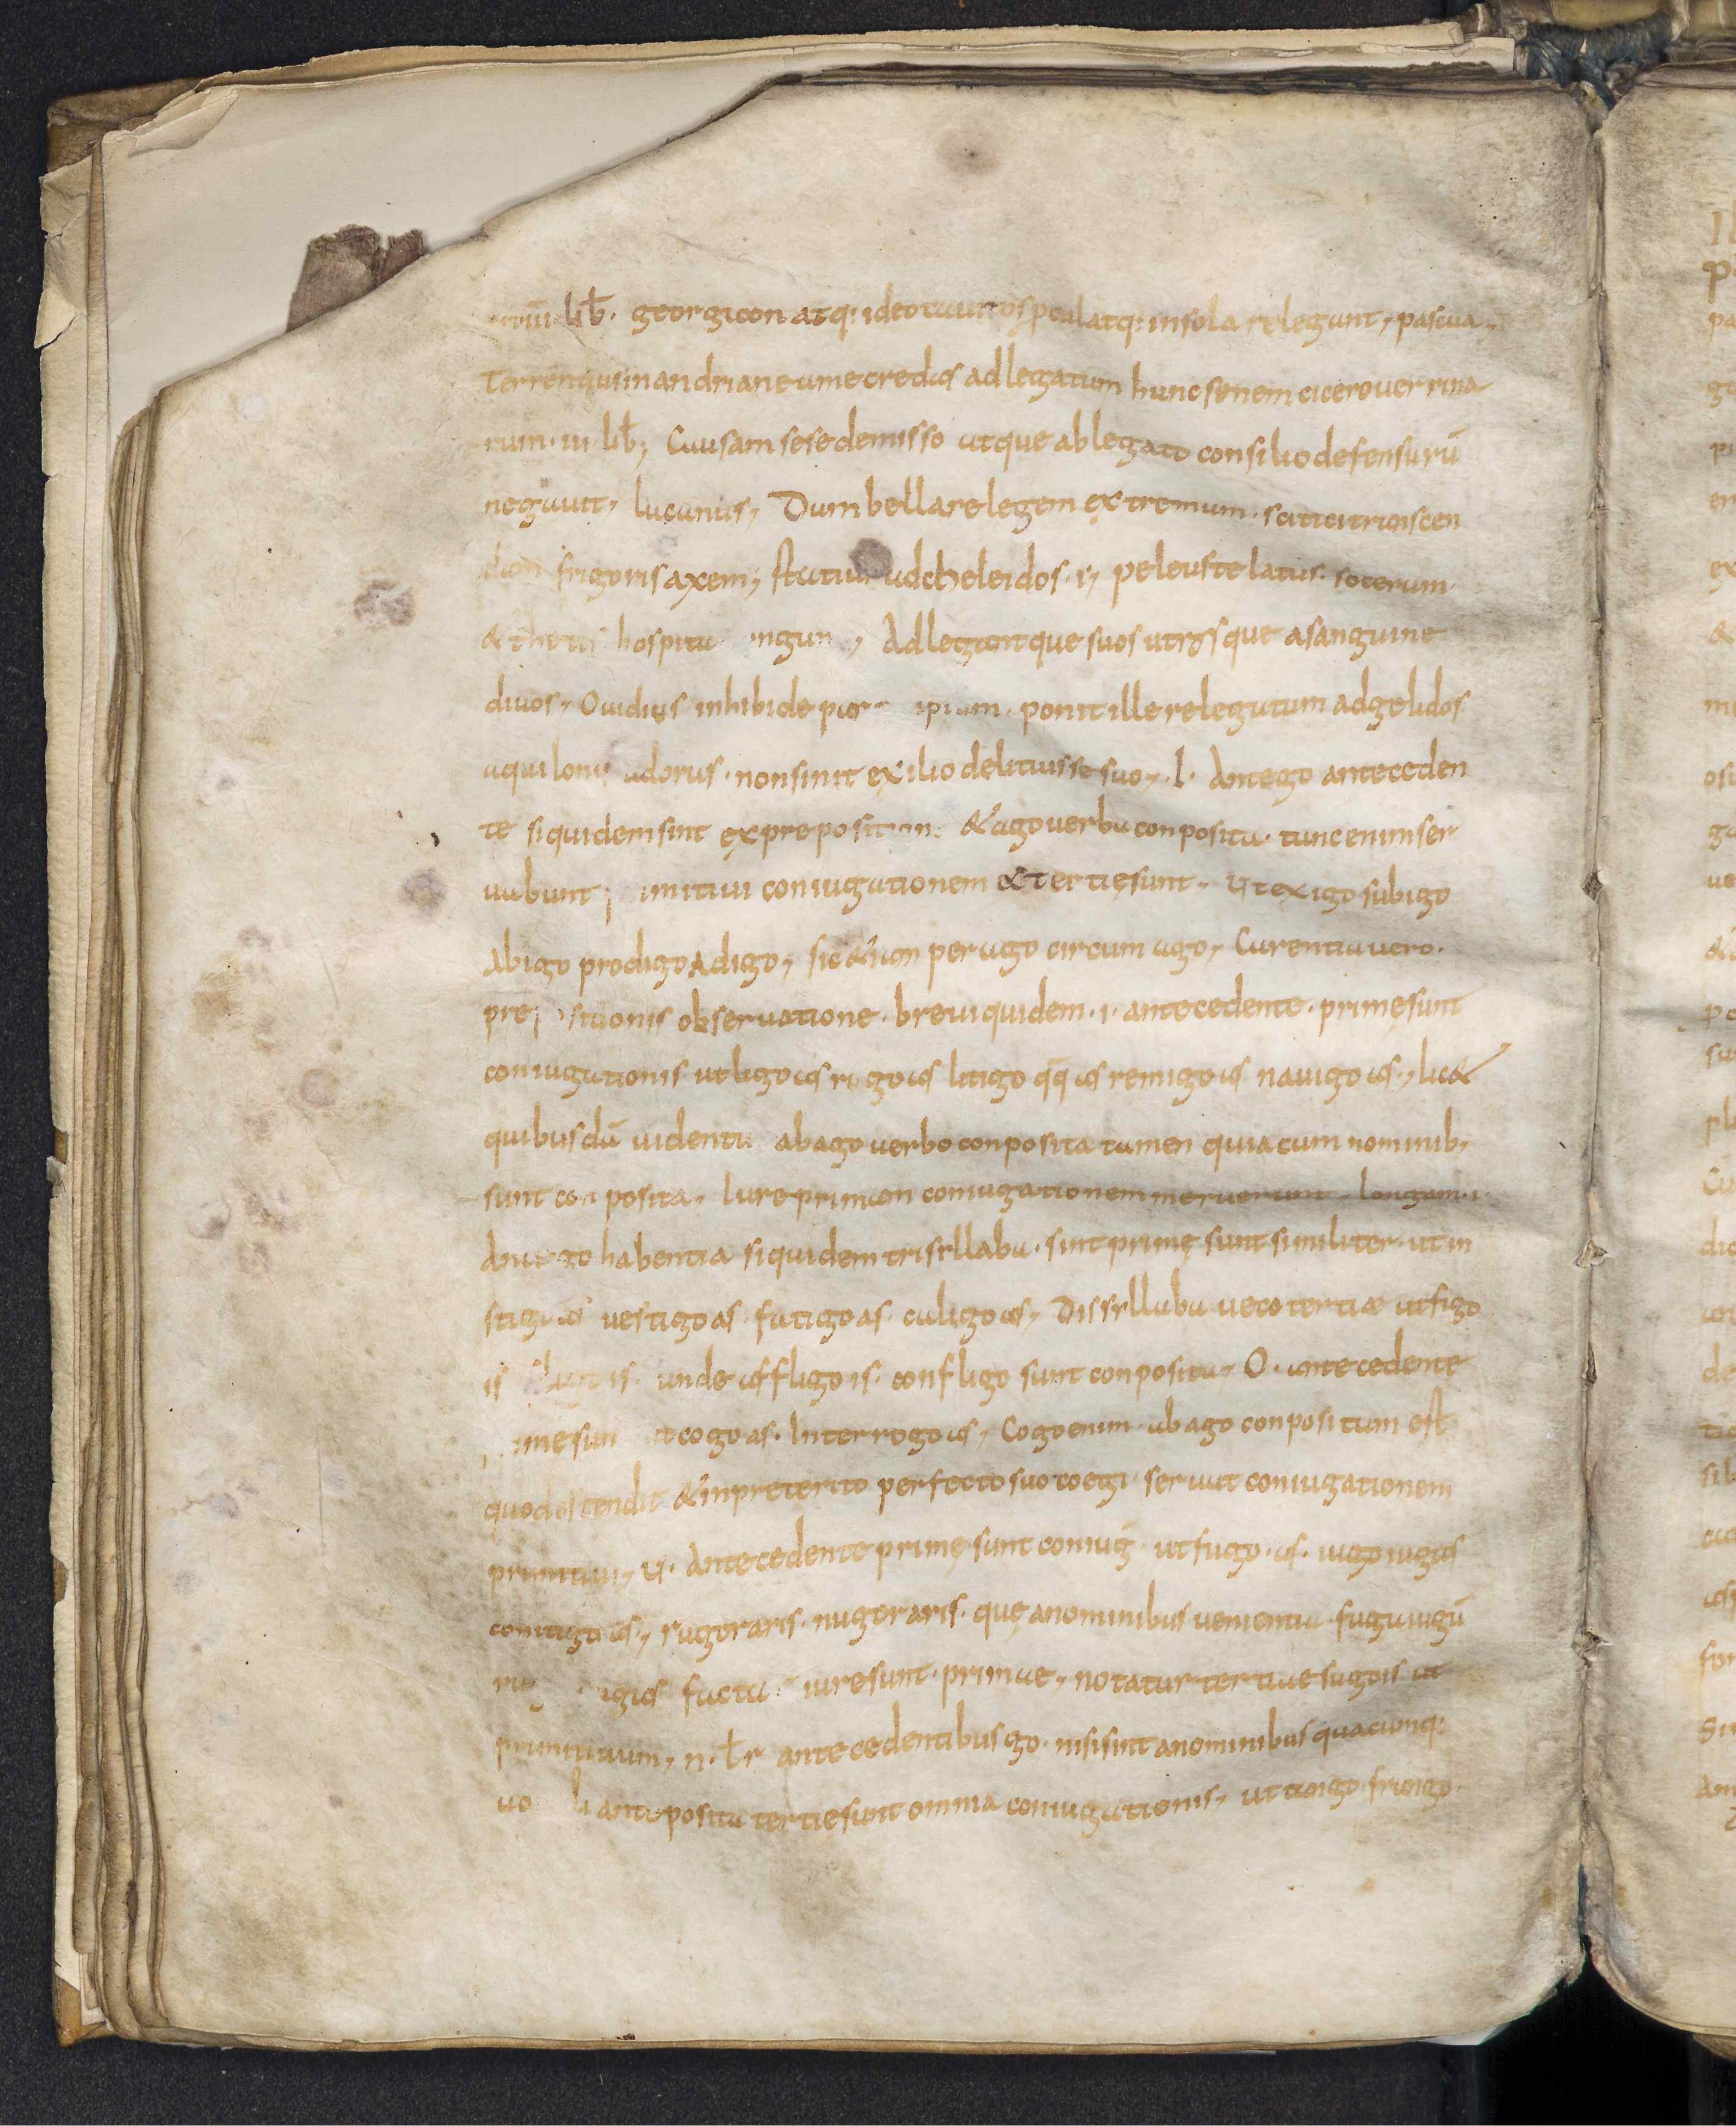 lib̄. georgicon atq: ideo tauros procul atq: in sola relegant, pascua,
Terrenqus in andriane ume credas adlegatum hunc senem cicero uerrina
rum. iii lib̄; Causam sese demisso atque ablegato consilio defensurū
negauit, lucanus, Dum bella relegem extremum. scitici trans
frigoris axem; statius adcheleidos. i, peleus te latus. socerum
& thetis hospita Adlegantque suos utrosque asanguine
diuos, Ouidius inhibide ponit ille relegatum adgelidos
aquilonis adorus. non sinit exilio delituisse suo,. I. Antego anteceden
te siquidem sint ex preposition & ago uerba conposita. tunc enim ser
uabunt coniugationem & tertięsunt, Ut exigo subigo
Abigo prodigo Adigo, sic &iam perago circum ago, Carentia uero.
pre sitionis obseruatione. breui quidem. i. antecedente. primęsunt
coniugationis ut ligo as rigo as litigo q̄q̄ as remigo as nauigo as., lic&
quibusdā uidentu ab ago uerbo conposita tamen quia cum nominib,
sunt conposita, Iure primam coniugationem meruerunt, longam. i.
Ante go habentia siquidem trisyllaba. sint primę sunt similiter. ut in
stigo as uestigo as. fatigo as. caligo as, Dissyllaba uero tertiae ut figo
is is. unde affligo is. confligo sunt conposita, O. antecedente
cogo as. Interrogo as, Cogo enim ab ago conpositum est
quod ostendit &in preterito perfecto suo coegi seruat coniugationem
primitiui, U. Antecedente primę sunt coniug̅ ut fugo. as. iugo iugas
coniugo as, rugor aris. nugor aris. quę anominibus uenientia fuga iugū
ugas facta iure sunt. primae, notatur tertiae sugo is ut
primitiuum, n. ł r antecedentibus go. nisi sint anominibus quacumq:
antiposita tertię sunt omnia coniugationis, ut tango frango